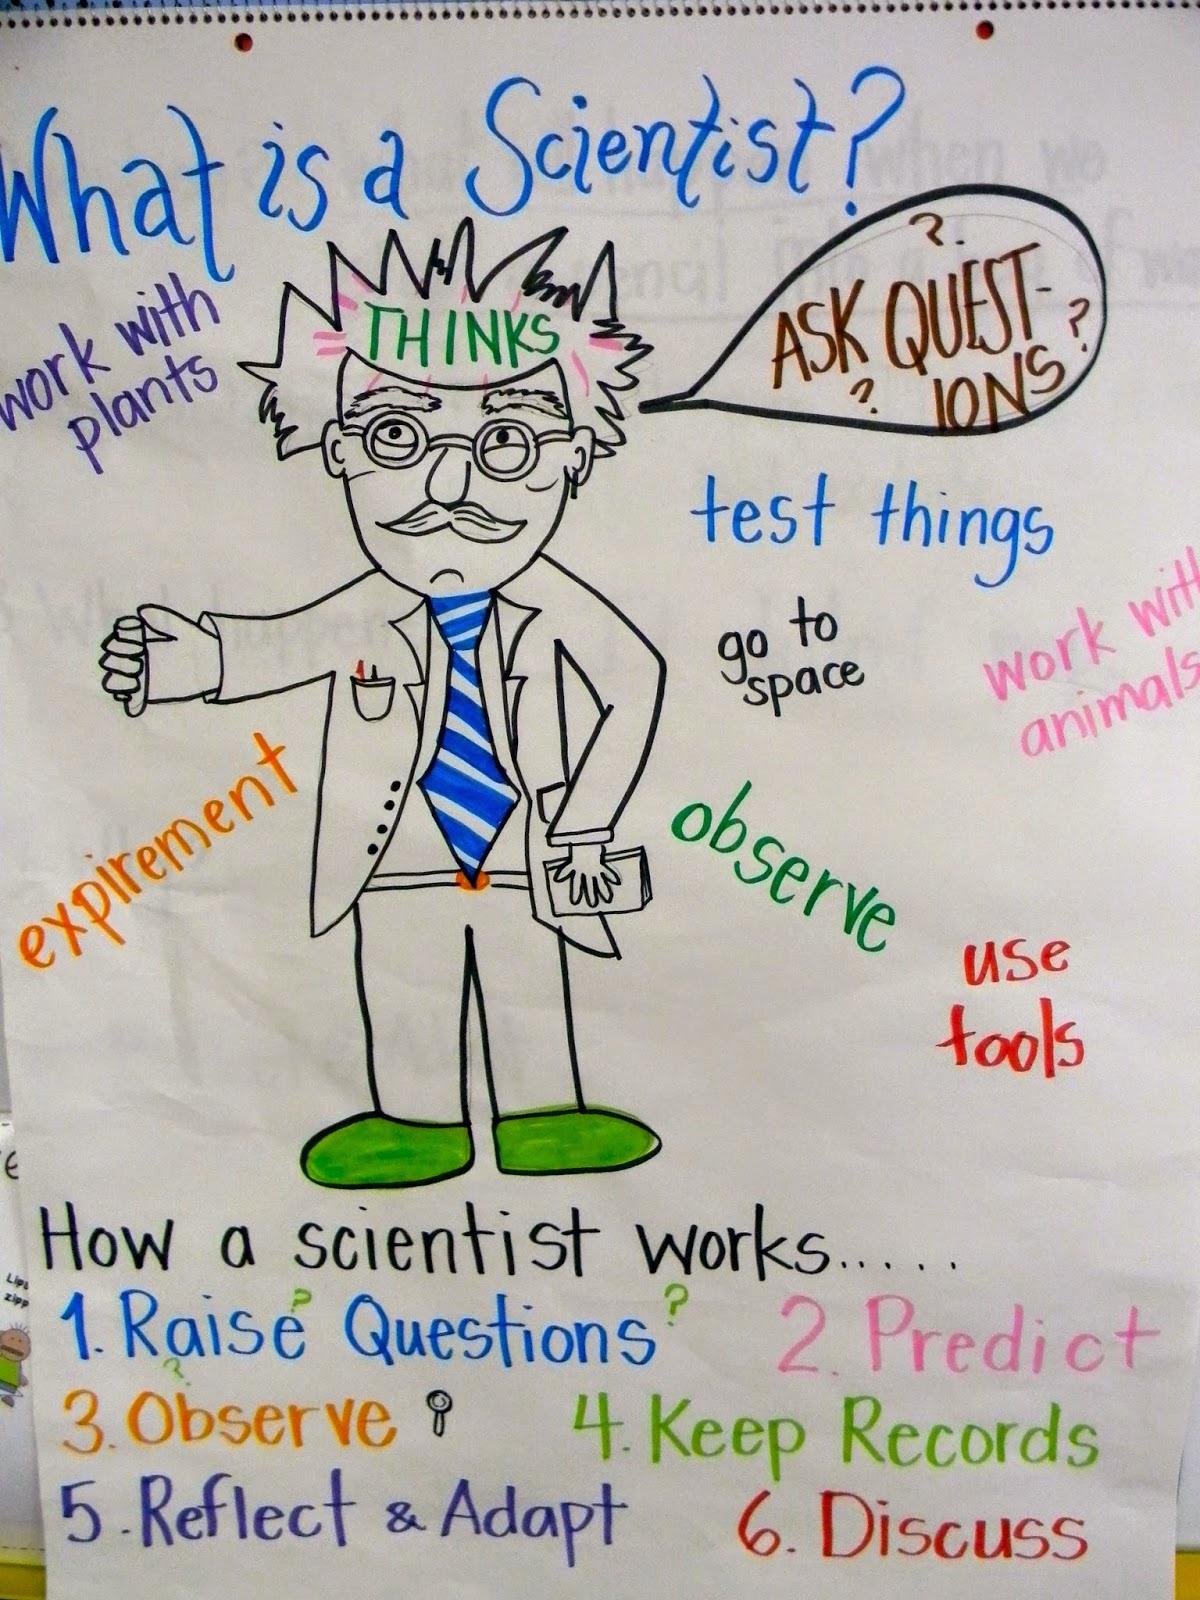 What is a Scientist?
work with
plants
THINKS
?
ASK QUEST-
IONS
?
?
test things
go to
space
work with
animals
expirement
observe
use
tools
How a scientist works.....
1. Raise Questions
?
?
?
2. Predict
3. Observe
4. Keep Records
5. Reflect & Adapt
6. Discuss